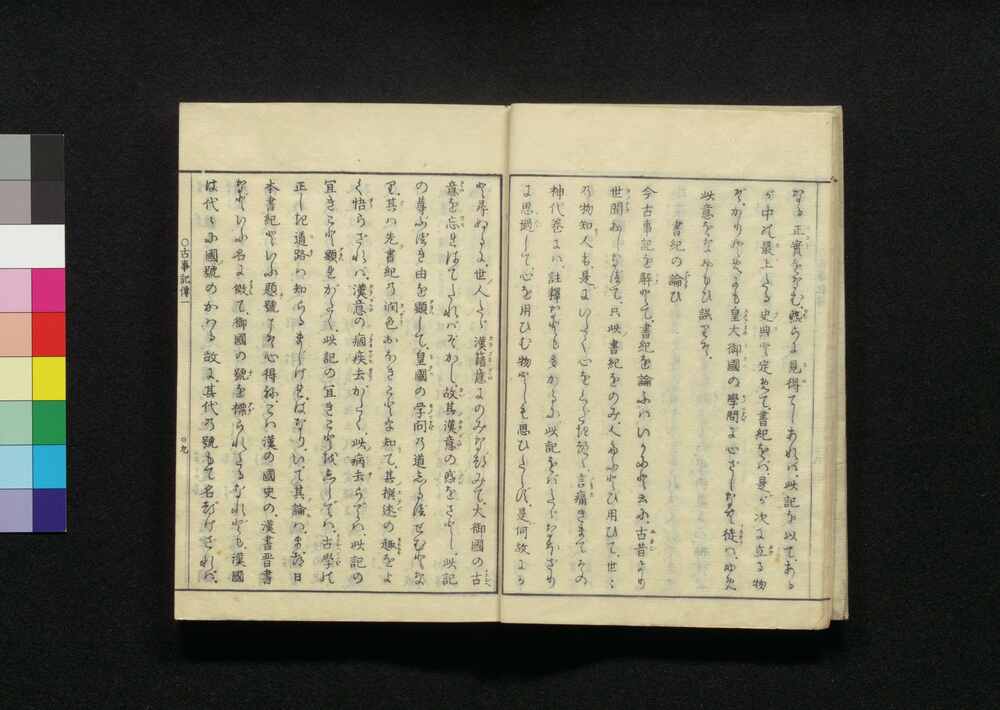 なる正實をなむ、熟らに見得てしあれば、此記を以て、あるが
が中の最上たる史典と定めて、書紀をば、是が次に立る物
ぞ、かりそめにも皇大御國の學問に心ざしなむ徒は、ゆめ
此意をなおもひ誤りそ、
書紀の論ひ
今古事記を解とて、書紀を論ふはいかにと云に、古昔より
世間おしなべて、只此書紀をのみ、人たふとび用ひて、世々
の物知人も、是にいたく心をくだきつゝ、言痛きまでその
神代巻には、註釋なども多かるに、此記をばたゞなほざり
に思ひ過して、心を用ひむ物としも思ひたらず、是何故にか
と尋ぬるに、世人たゞ漢籍意にのみなづみて、大御國の古
意を忘れはてたればぞかし、故其漢意の惑をさとし、此記
の尊ぶべき由を顯して、皇國の学問の道しるべせむとな
り、其は先書紀の潤色おほきことを知て、其撰述の趣をよ
く悟らざれば、漢意の痼疾去がたく、此病去らでは、此記の
宜きこと顯れがたく、此記の宜きことをしらでは、古學の
正しき道路は知らるまじければなり、いで其論は、まづ日
本書紀といふ題號こそ心得ね、こは漢の國史の、漢書晋書
などいふ名に傚て、御國の號を標られたるなれども、漢國
は代々に國號のかはる故に、其代の號もて名づけざれば、
○古事記傳一
○九